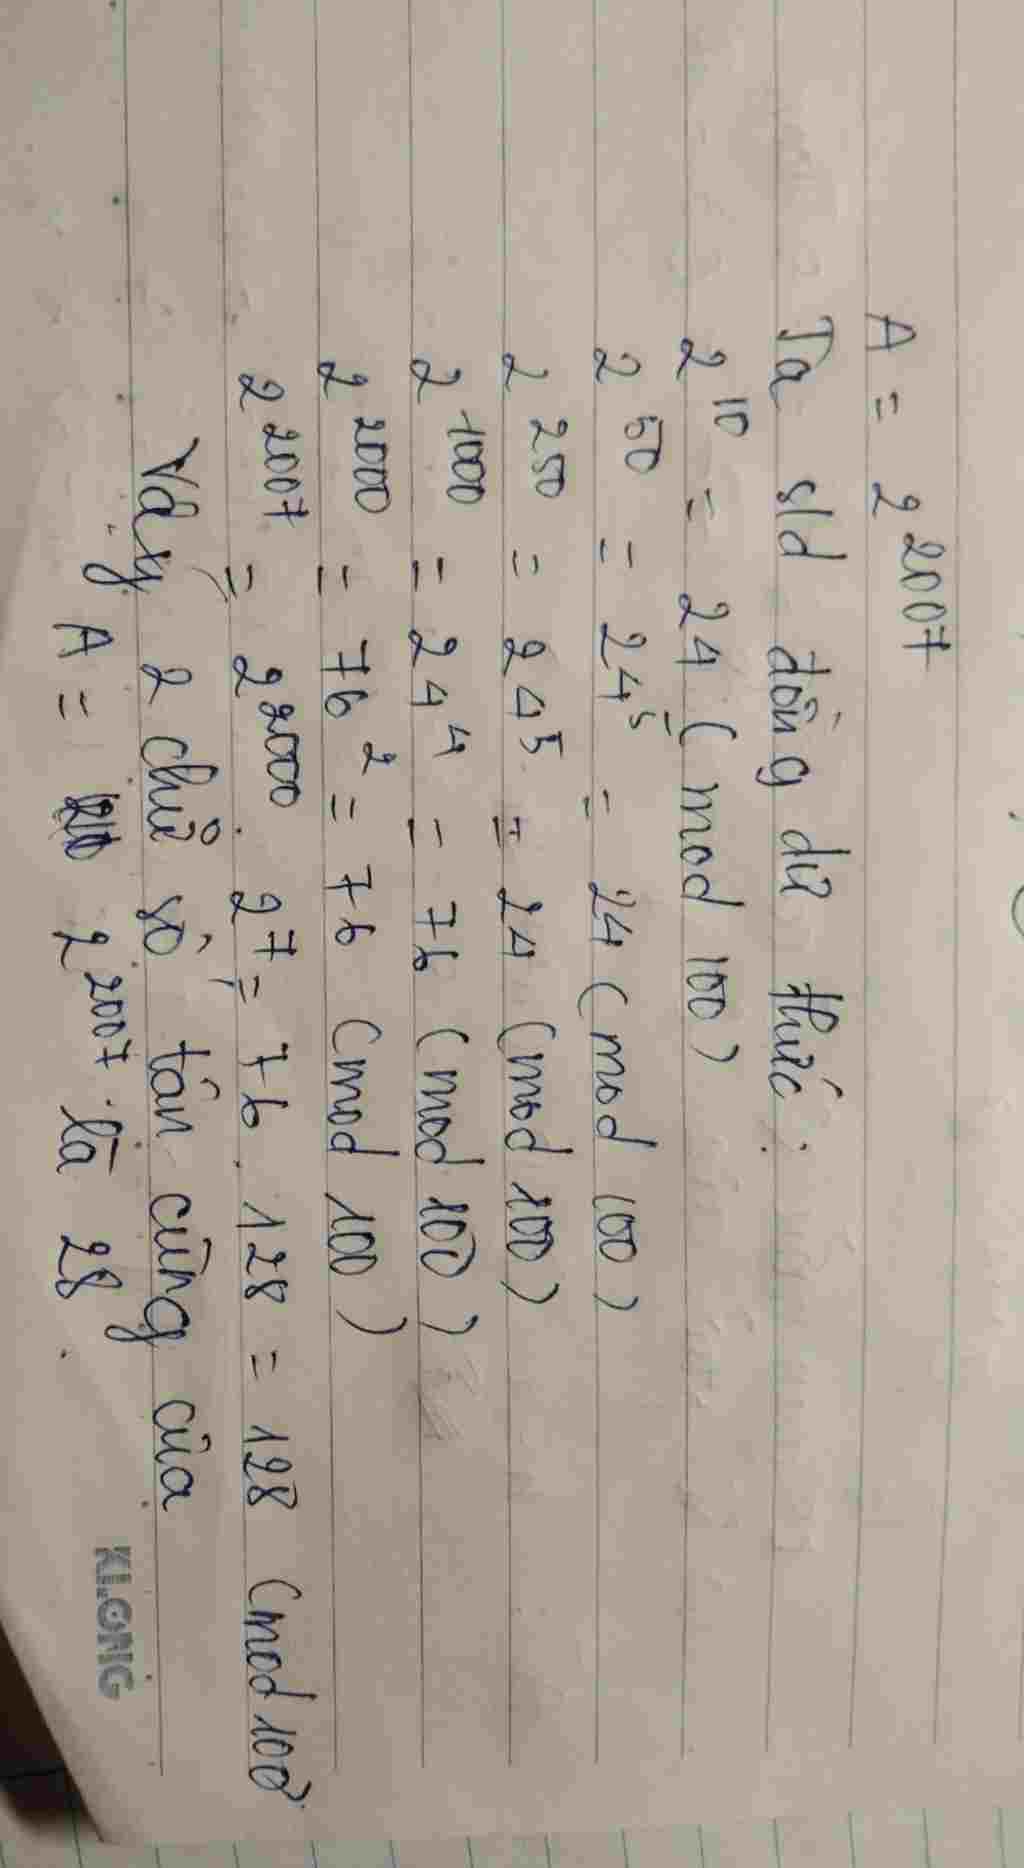 A = 2^2007
Ta sd đồng dư thức:
2^10 = 24 (mod 100)
2^50 = 24^5 = 24 (mod 100)
2^250 = 24^5 = 24 (mod 100)
2^1000 = 24^4 = 76 (mod 100)
2^2000 = 76^2 = 76 (mod 100)
2^2007 = 2^2000 . 2^7 = 76 . 128 = 128 (mod 100)
Vậy 2 chữ số tận cùng của
A = 2^2007 là 28.
KLONG